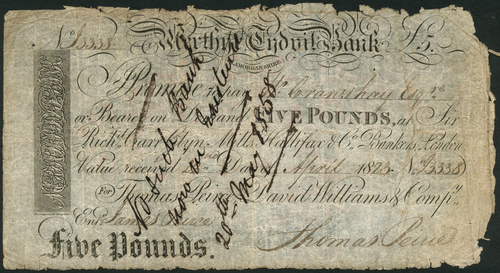 No 3338 Merthyr Tydvil Bank £5.
GLAMORGANSHIRE
I Promise to pay Wm Crawshay Esqre
or Bearer on Demand FIVE POUNDS, at Sir
Richd. Carr Glyn, Mills, Hallifax & Co. Bankers, London
Value received Day of April 1825 No 3338
For Thomas David Williams & Compy.
Entd James
Five Pounds. Thomas
No such Bank
now in existence
20th May 1858